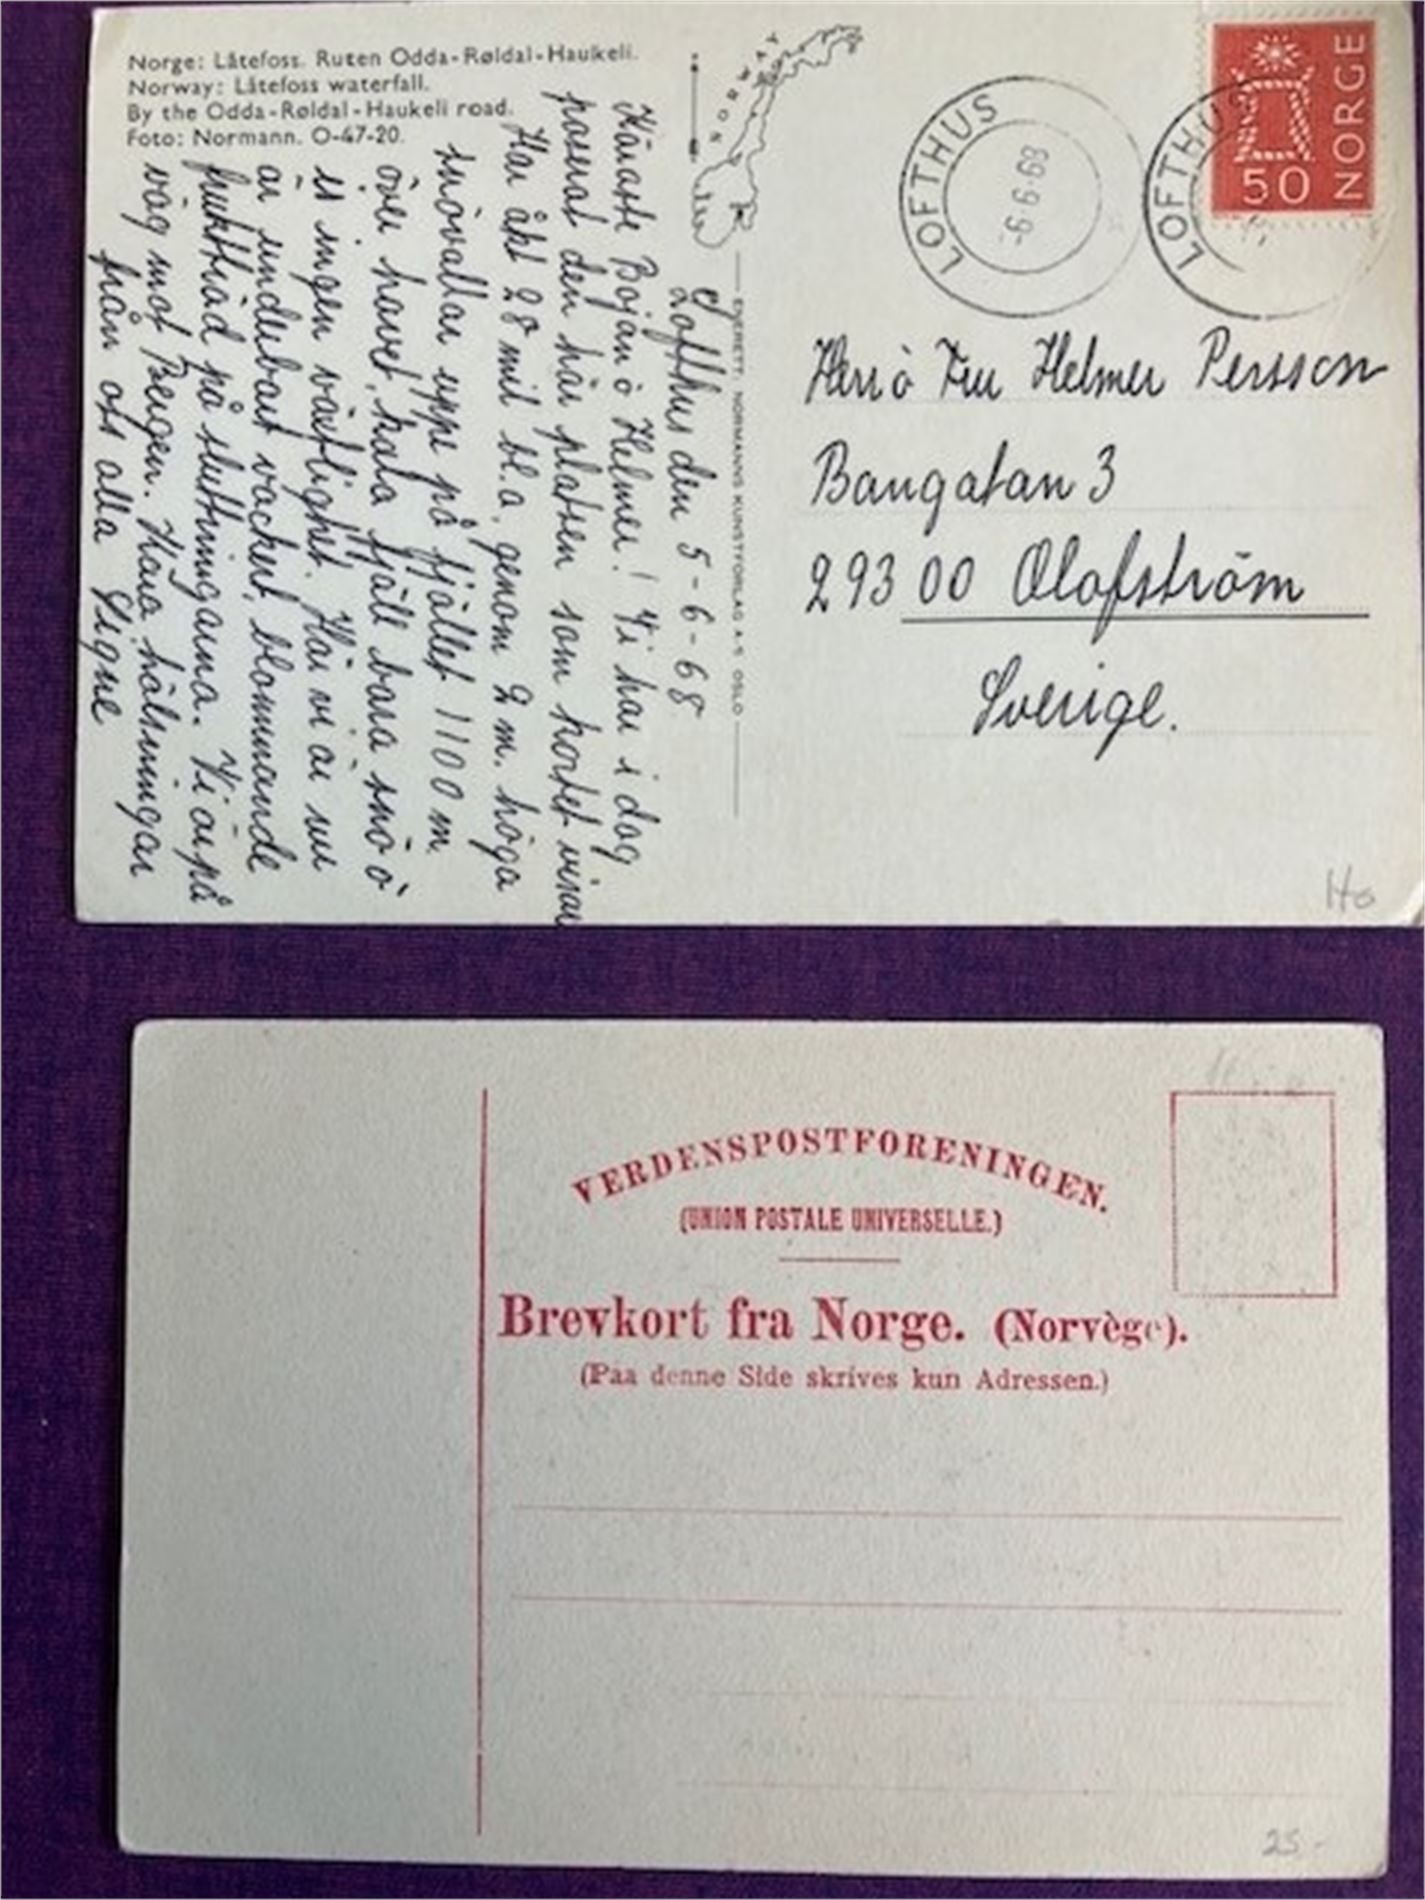 Norge: Låtefoss. Ruten Odda-Røldal-Haukeli.
Norway: Låtefoss waterfall.
By the Odda-Røldal-Haukeli road.
Foto: Normann. O-47-20.
NORWAY
Lofthus den 5-6-68
Käraste Bojan o Helmer! Vi har i dag
passerat den här platsen som kortet visar
Har åkt 28 mil bl.a. genom 2 m. höga
snövallar uppe på fjället 1100 m.
över havet, kala fjäll bara snö o
is ingen växtlighet. Här vi är nu
är underbart vackert, blommande
fruktträd på sluttningarna. Vi är på
väg mot Bergen. Kära hälsningar
från oss alla Signe
ENERETT: NORMANNS KUNSTFORLAG A-S OSLO
LOFTHUS
-9 6 68
LOFTHUS
50 NORGE
Herr o Fru Helmer Persson
Bangatan 3
293 00 Olofström
Sverige.
VERDENSPOSTFORENINGEN.
(UNION POSTALE UNIVERSELLE.)
Brevkort fra Norge. (Norvège).
(Paa denne Side skrives kun Adressen.)
25-